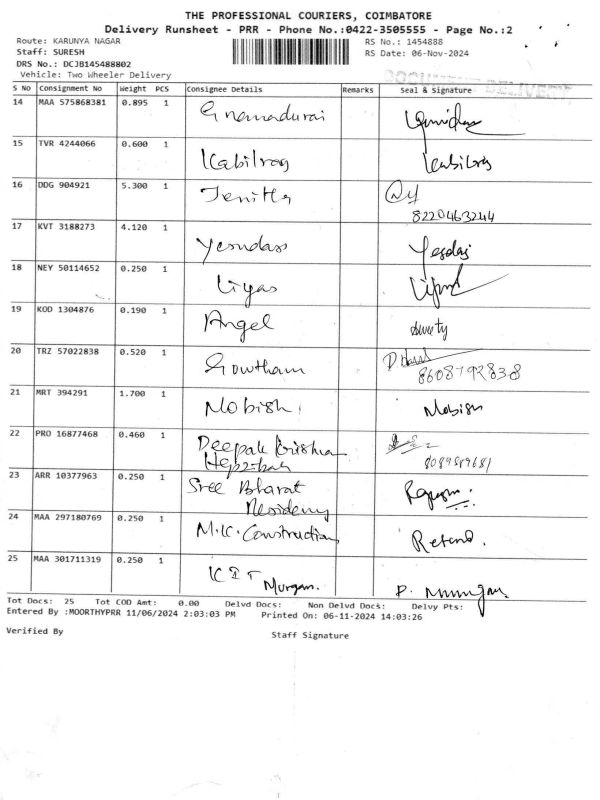 THE PROFESSIONAL COURIERS, COIMBATORE
Delivery Runsheet - PRR - Phone No.:0422-3505555 - Page No.:2
Route: KARUNYA NAGAR
RS No.: 1454888
Staff: SURESH
RS Date: 06-Nov-2024
DRS No.: DCJB145488802
Vehicle: Two Wheeler Delivery
DOCUMENT DELIVERY
S No Consignment No Weight PCS Consignee Details Remarks Seal & Signature
14 MAA 575868381 0.895 1 Gnanadurai
15 TVR 4244066 0.600 1 Kabilraj Kabilraj
16 DDG 904921 5.300 1 Jenitta
8220463244
17 KVT 3188273 4.120 1 Yesudass Yesdas
18 NEY 50114652 0.250 1 Liyas
19 KOD 1304876 0.190 1 Angel
20 TRZ 57022838 0.520 1 Gowtham
8608792838
21 MRT 394291 1.700 1 Mobish. Mobish
22 PRO 16877468 0.460 1 Deepak Krishna
Hepzibah
8089589681
23 ARR 10377963 0.250 1 Sree Bharat
Residency
24 MAA 297180769 0.250 1 M.K. Construction
25 MAA 301711319 0.250 1 KIT Murgan. P. Murugan
Tot Docs: 25 Tot COD Amt: 0.00 Delvd Docs: Non Delvd Docs: Delvy Pts:
Entered By :MOORTHYPRR 11/06/2024 2:03:03 PM Printed On: 06-11-2024 14:03:26
Verified By
Staff Signature